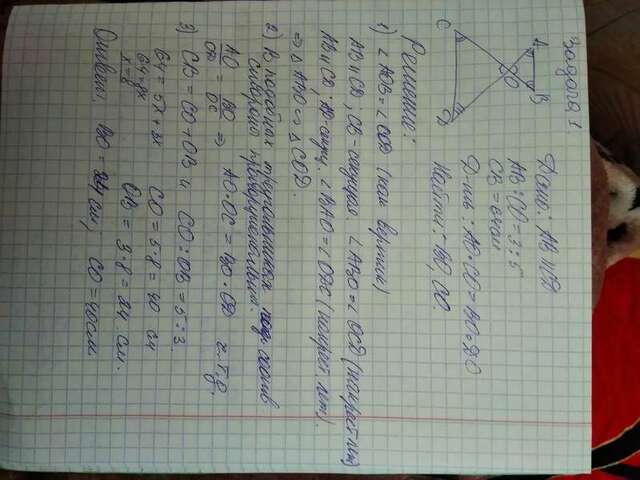 Задача 1
A
B
O
C
D
Дано: AB || CD
AB : CD = 3 : 5
CB = 64 см
Д-ть: AO · CO = BO · DO
Найти: BO, CO
Решение:
1) ∠AOB = ∠COD (как вертик)
AB || CD; CB - секущая ∠ABO = ∠OCD (накрест леж)
AB || CD; AD - секущ. ∠BAO = ∠ODC (накрест леж).
⇒ △ABO ∽ △COD.
2) В подобных треугольниках соотв
стороны пропорциональны.
AO/OD = BO/OC ⇒ AO · OC = BO · OD ч.т.д.
3) CB = CO + OB и CO : OB = 5 : 3
64 = 5x + 3x CO = 5 · 8 = 40 см
64 = 8x OB = 3 · 8 = 24 см.
x = 8
Ответ: BO = 24 см, CO = 40 см